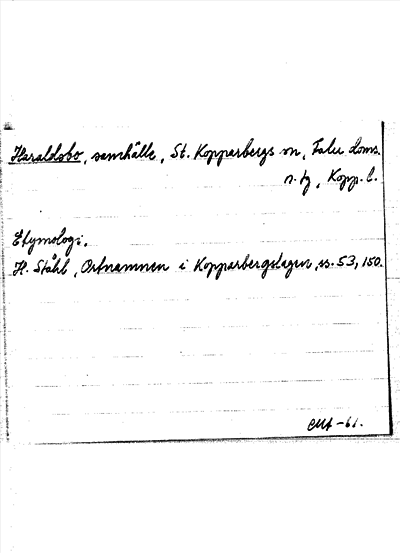 Haraldsbo, samhälle, St. Kopparbergs sn, Falu doms.
n. tg, Kopp. l.
Etymologi.
H. Ståhl, Ortnamnen i Kopparbergslagen, ss. 53, 150.
-61.